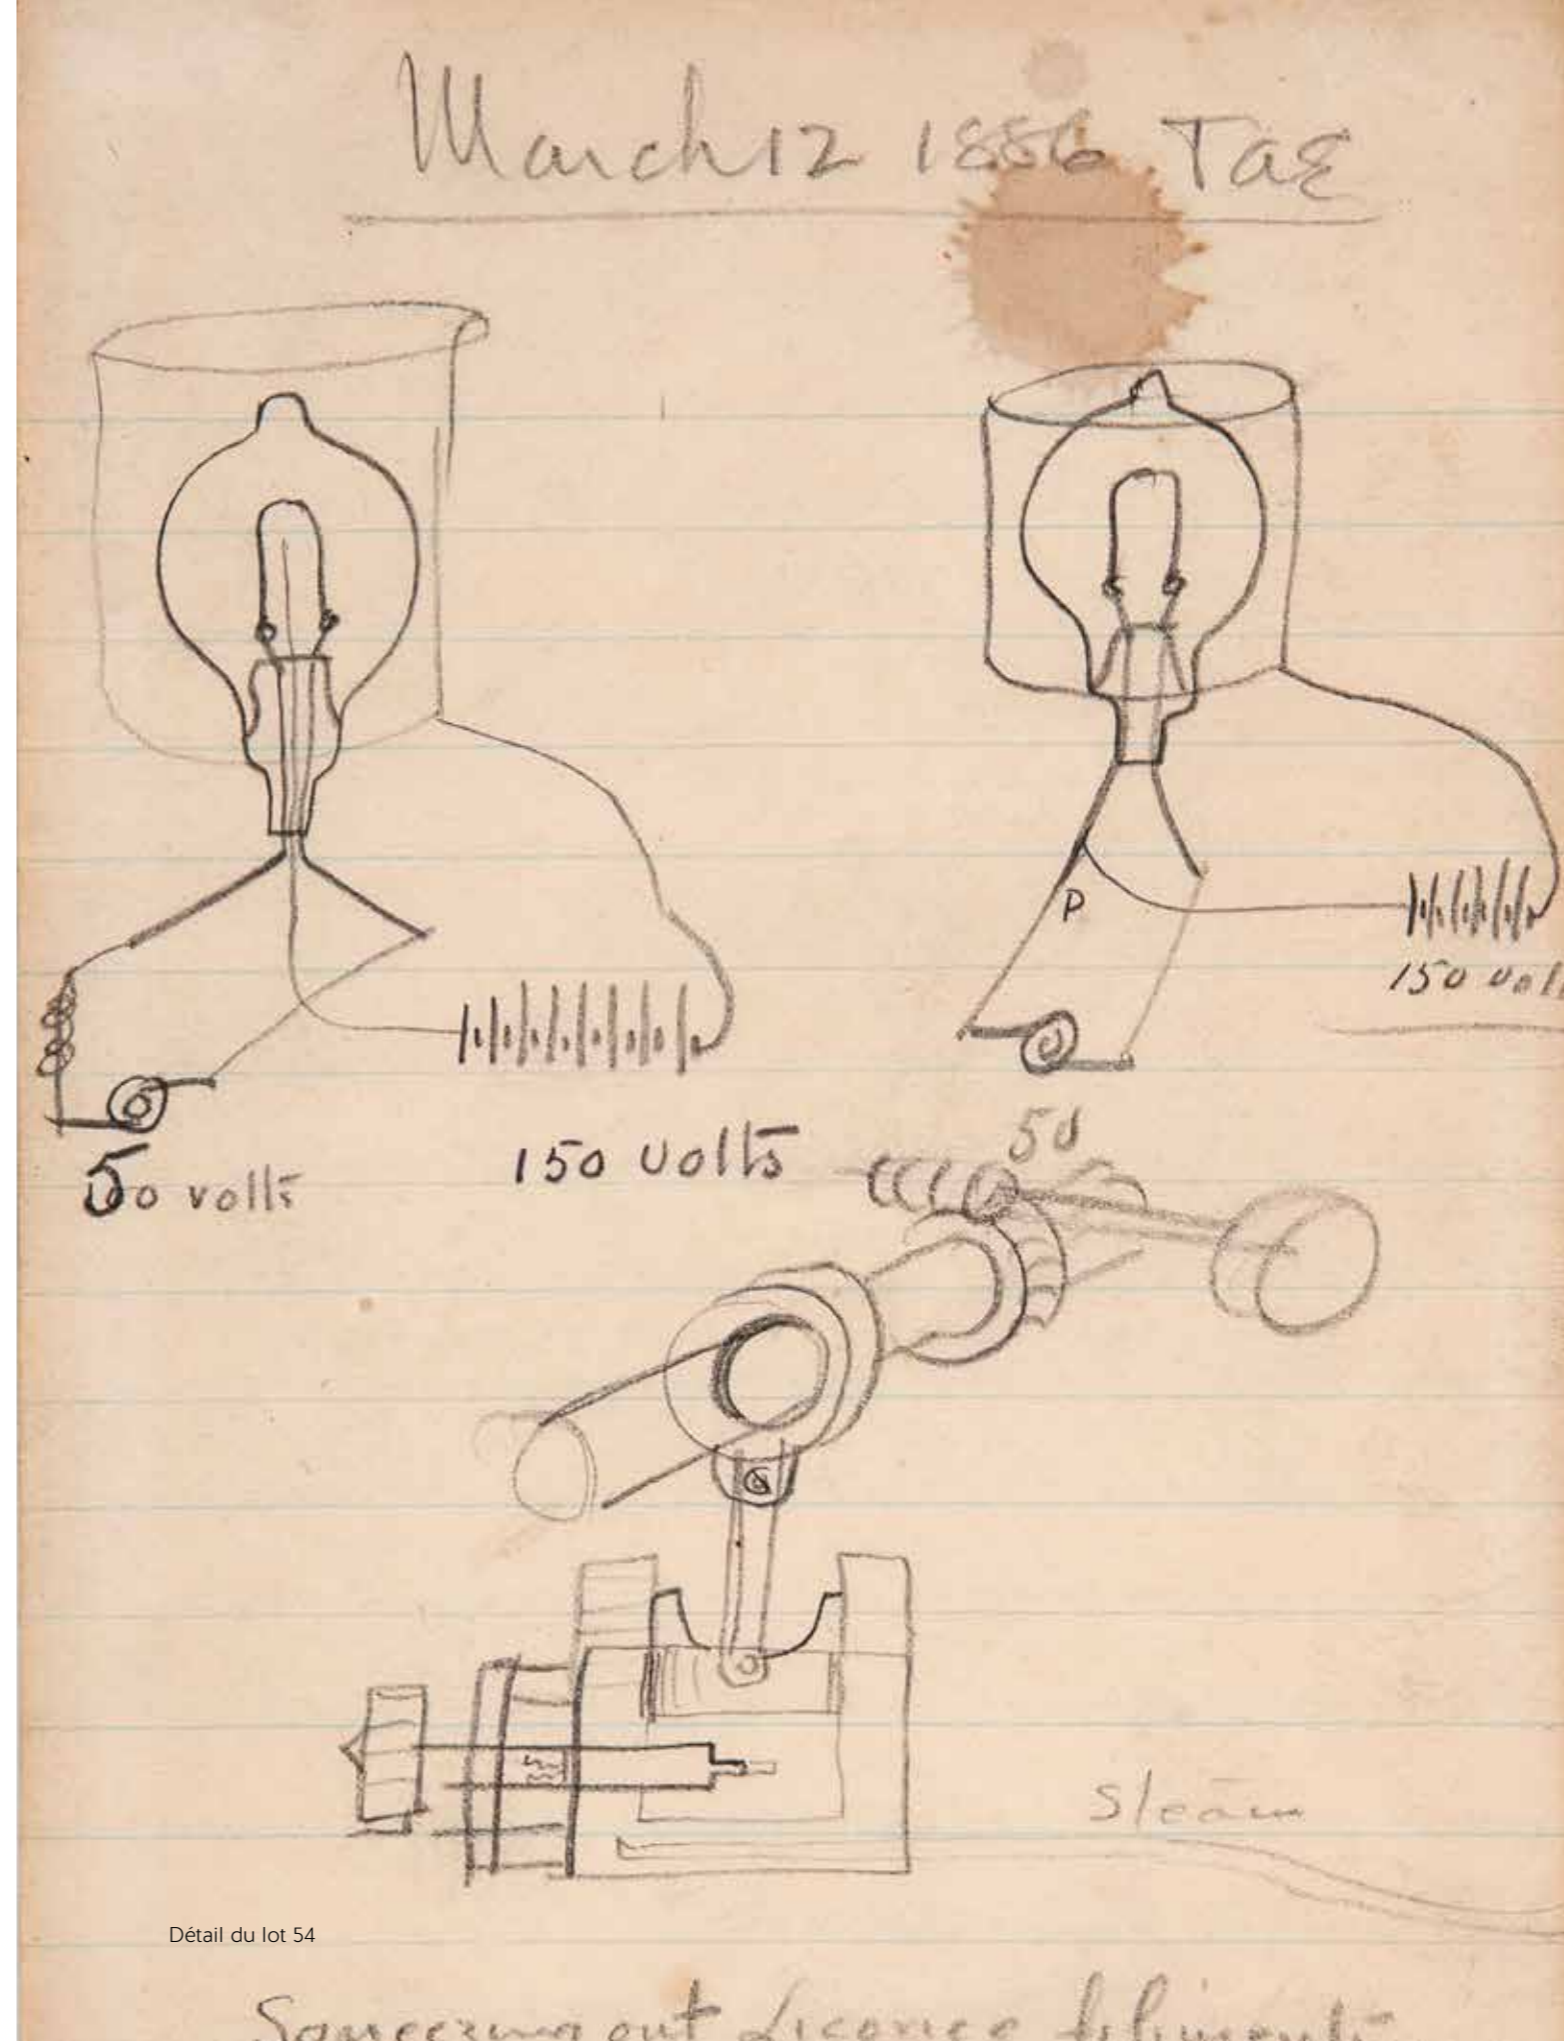 March 12 1886 TAE
P
150 vol
50
150 volts
50 volts
G
Steam
Détail du lot 54
Squeezing out Licorice filiments